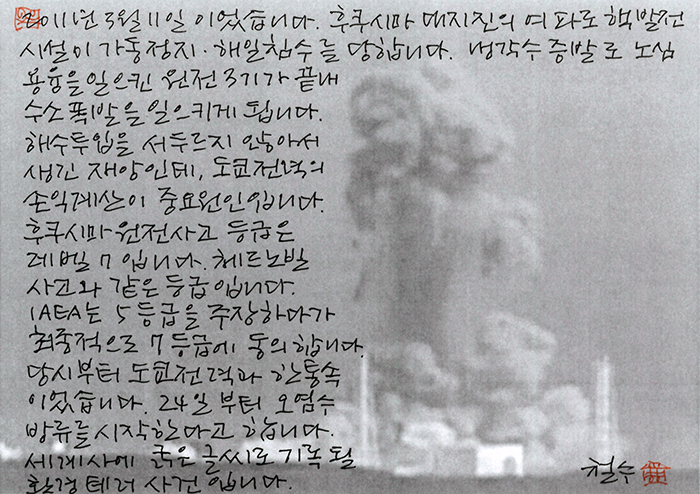 2011년 3월 11일 이었습니다. 후쿠시마 대지진의 여파로 핵발전
시설이 가동정지·해일침수를 당합니다. 냉각수 증발로 노심
용융을 일으킨 원전 3기가 끝내
수소폭발을 일으키게 됩니다.
해수투입을 서두르지 않아서
생긴 재앙인데, 도쿄전력의
손익계산이 중요원인입니다.
후쿠시마원전사고 등급은
레벨 7 입니다. 체르노빌
사고와 같은 등급입니다.
IAEA는 5등급을 주장하다가
최종적으로 7등급에 동의합니다.
당시부터 도쿄전력과 한통속
이었습니다. 24일부터 오염수
방류를 시작한다고 합니다.
세계사에 굵은 글씨로 기록될
환경테러 사건입니다.
철수